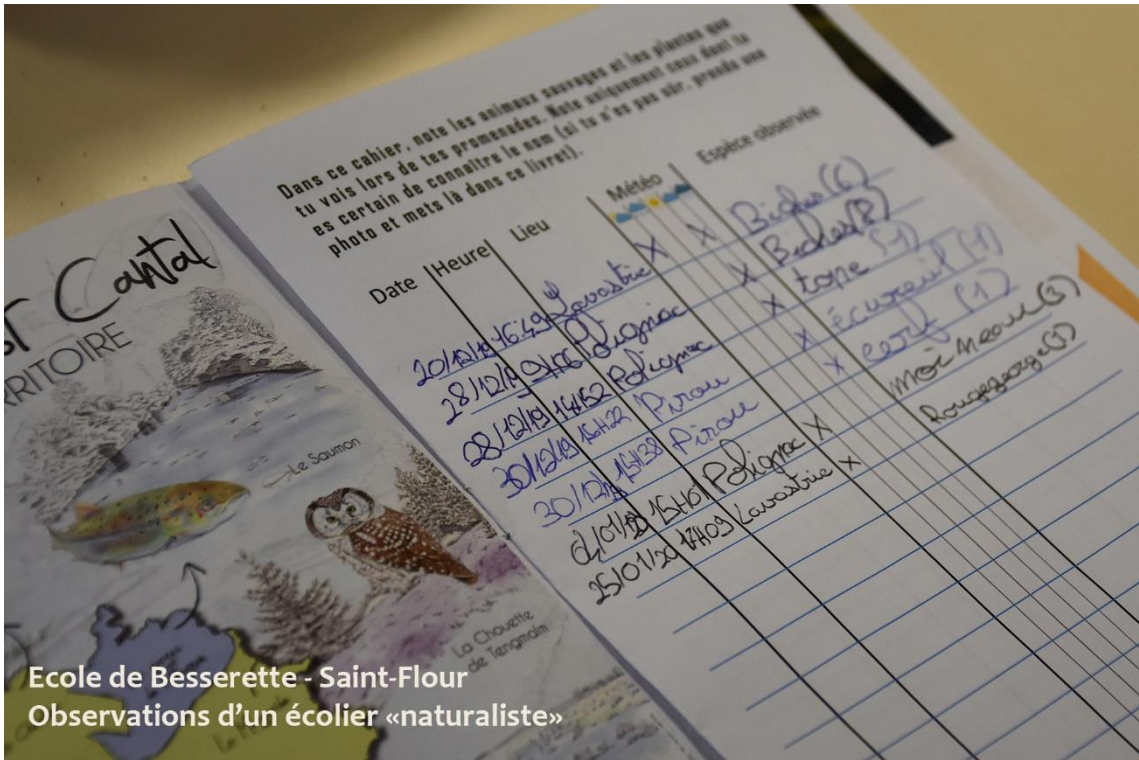 Dans ce cahier, note les animaux sauvages et les plantes que
tu vois lors de tes promenades. Note uniquement ceux dont tu
es certain de connaître le nom (si tu n'es pas sûr, prends une
photo et mets là dans ce livret).
Date Heure Lieu Météo Espèce observée
20/12/19 16:49 Lavastrie X X Biches (6)
28/12/19 Polignac X Biches (8)
28/12/19 14h52 Polignac X tope (1)
30/12/19 15h22 Pirou X écureuil (1)
30/12/19 15h38 Pirou X cerf (1)
15h01 Polignac X moineau (3)
25/01/20 17h09 Lavastrie X Rougegorge (1)
Cantal
RRITOIRE
Le Saumon
La Chouette
de Tengmalm
Ecole de Besserette - Saint-Flour
Observations d'un écolier «naturaliste»